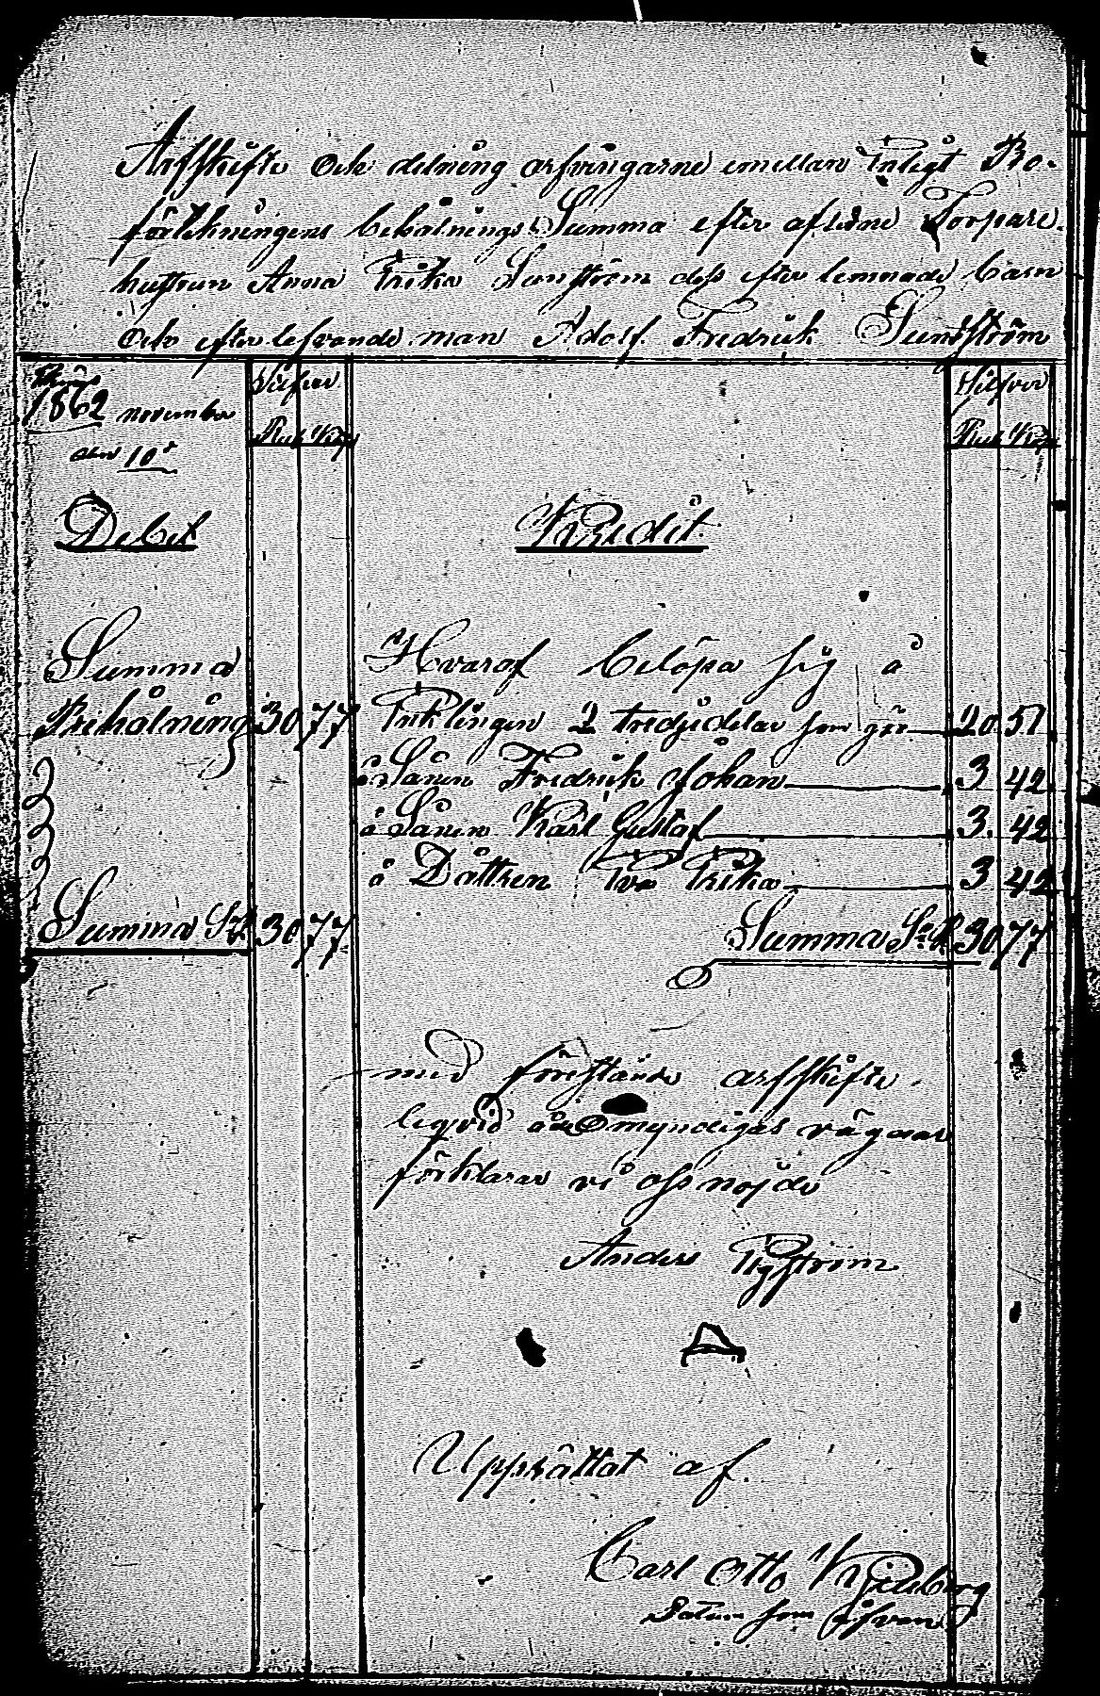 Arfskifte Och delning arfvingarne emellan Enligt Bo-
förtekningens behålnings Summa efter afledne Torpare
hustrun Anna Erika Sunström dess efter lemnade barn
Och efterlefvande man Adolf Fredrik Sunström
1862 november
den 10
Silfver
Rub Kop
Silfver
Rub Kop
Debet
Kredit
Summa
Behålning 30 77
Hvaraf belöpa sig å
Enklingen 2 tredjedelar som gör 20 51
å Sånen Fredrik Johan 3 42
å Sånen Karl Gustaf 3. 42
å Dåttren Eva Erika 3 42
Summa 30 77
Summa 30 77
med förestånde arfskifte
liqvid å Omyndigas vägnar
förklarar vi oss nöjde
Anders
Upprättat af.
Carl Otto
Datum som ofvan